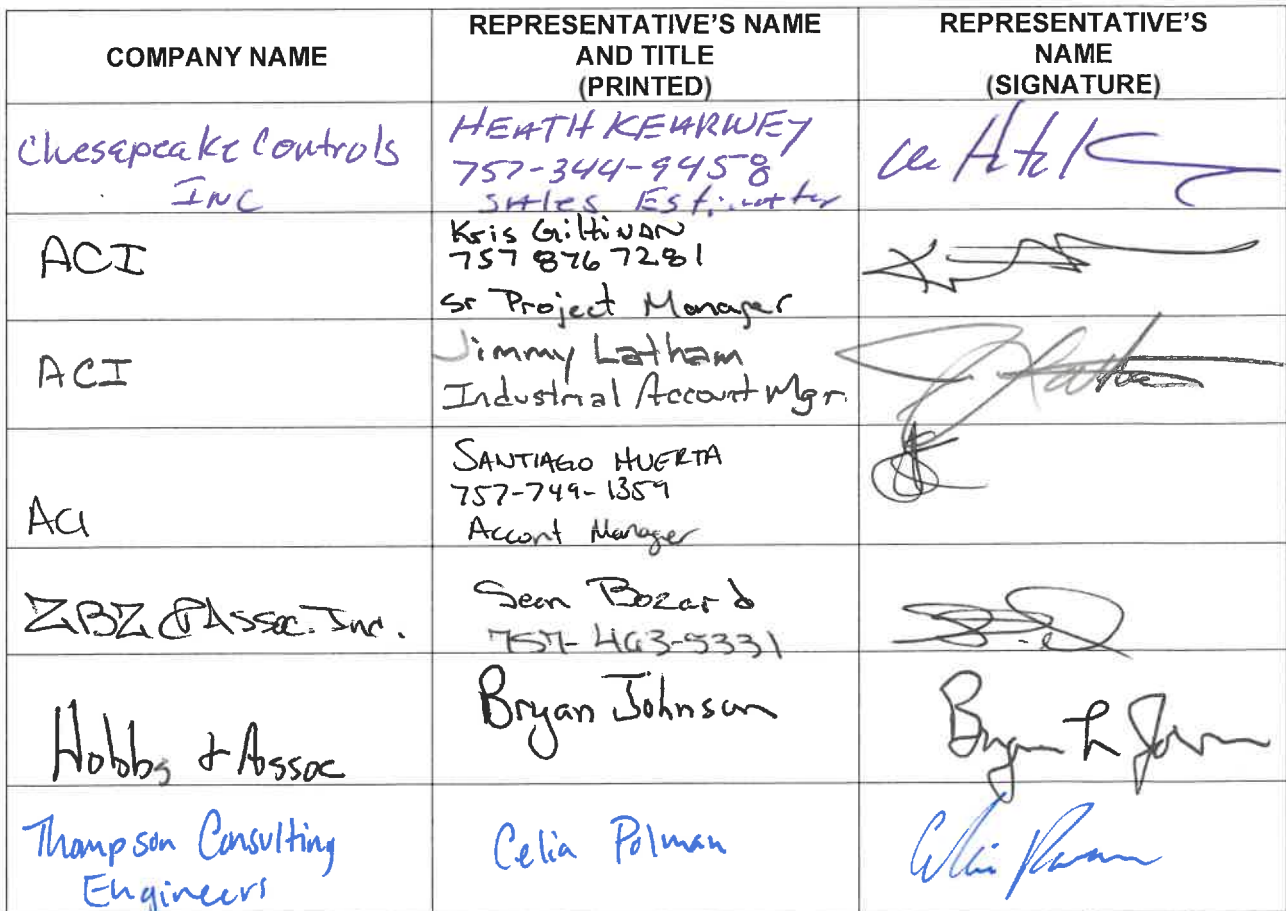 COMPANY NAME
REPRESENTATIVE'S NAME
AND TITLE
(PRINTED)
REPRESENTATIVE'S
NAME
(SIGNATURE)
Chesapeake Controls
INC
HEATH KEARNEY
757-344-9458
SALES Estimator
ACI
Kris Giltinan
757 876 7281
Sr Project Manager
ACI
Jimmy Latham
Industrial Account Mgr.
ACI
SANTIAGO HUERTA
757-749-1359
Accont Manager
ZBZ & Assoc. Inc.
Sean Bozard
757-463-5331
Hobbs & Assoc
Bryan Johnson
Bryan L
Thompson Consulting
Engineers
Celia Polman